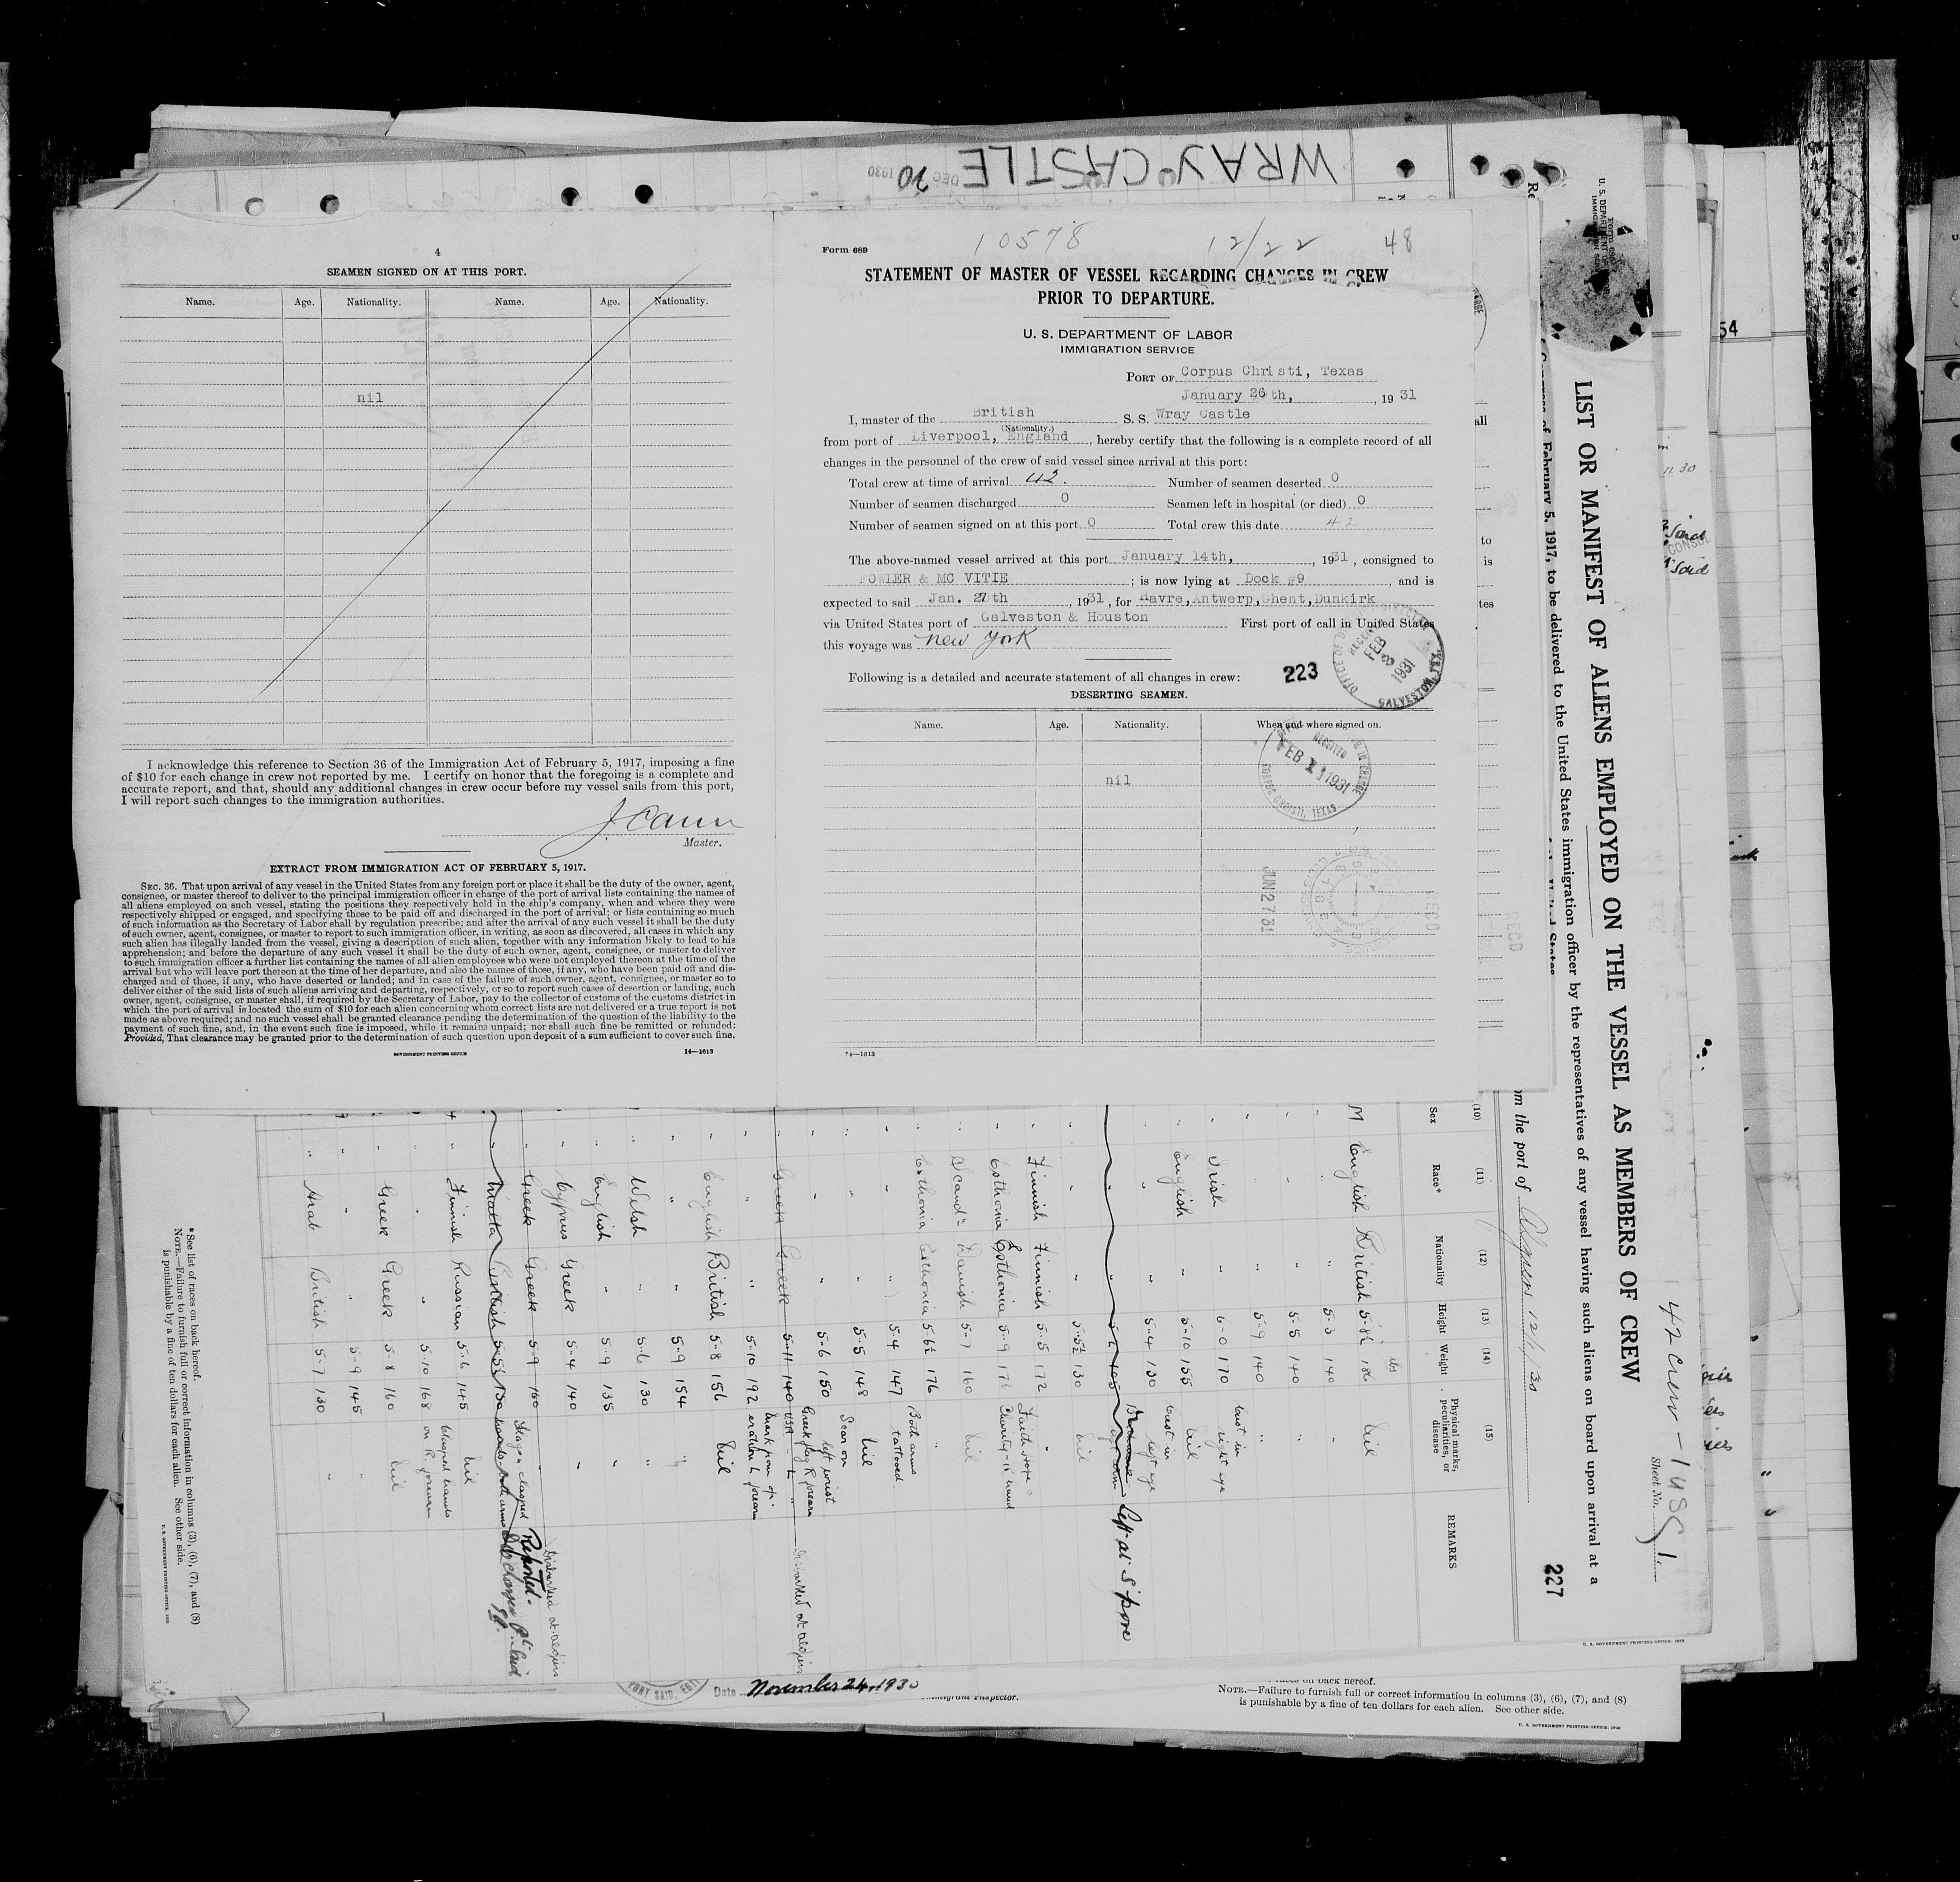 WRAY CASTLE
DEC 20 1930
4
SEAMEN SIGNED ON AT THIS PORT.
Name. Age. Nationality. Name. Age. Nationality.
nil
I acknowledge this reference to Section 36 of the Immigration Act of February 5, 1917, imposing a fine
of $10 for each change in crew not reported by me. I certify on honor that the foregoing is a complete and
accurate report, and that, should any additional changes in crew occur before my vessel sails from this port,
I will report such changes to the immigration authorities.
Master.
EXTRACT FROM IMMIGRATION ACT OF FEBRUARY 5, 1917.
SEC. 36. That upon arrival of any vessel in the United States from any foreign port or place it shall be the duty of the owner, agent,
consignee, or master thereof to deliver to the principal immigration officer in charge of the port of arrival lists containing the names of
all aliens employed on such vessel, stating the positions they respectively hold in the ship's company, when and where they were
respectively shipped or engaged, and specifying those to be paid off and discharged in the port of arrival; or lists containing so much
of such information as the Secretary of Labor shall by regulation prescribe; and after the arrival of any such vessel it shall be the duty
of such owner, agent, consignee, or master to report to such immigration officer, in writing, as soon as discovered, all cases in which any
such alien has illegally landed from the vessel, giving a description of such alien, together with any information likely to lead to his
apprehension; and before the departure of any such vessel it shall be the duty of such owner, agent, consignee, or master to deliver
to such immigration officer a further list containing the names of all alien employees who were not employed thereon at the time of the
arrival but who will leave port thereon at the time of her departure, and also the names of those, if any, who have been paid off and dis-
charged and of those, if any, who have deserted or landed; and in case of the failure of such owner, agent, consignee, or master so to
deliver either of the said lists of such aliens arriving and departing, respectively, or so to report such cases of desertion or landing, such
owner, agent, consignee, or master shall, if required by the Secretary of Labor, pay to the collector of customs of the customs district in
which the port of arrival is located the sum of $10 for each alien concerning whom correct lists are not delivered or a true report is not
made as above required; and no such vessel shall be granted clearance pending the determination of the question of the liability to the
payment of such fine, and, in the event such fine is imposed, while it remains unpaid; nor shall such fine be remitted or refunded:
Provided, That clearance may be granted prior to the determination of such question upon deposit of a sum sufficient to cover such fine.
GOVERNMENT PRINTING OFFICE 14—1613
Form 689
10578 12/22 48
STATEMENT OF MASTER OF VESSEL REGARDING CHANGES IN CREW
PRIOR TO DEPARTURE.
U. S. DEPARTMENT OF LABOR
IMMIGRATION SERVICE
PORT OF Corpus Christi, Texas
January 26th, , 19 31
I, master of the British S. S. Wray Castle
(Nationality.)
from port of Liverpool, England, hereby certify that the following is a complete record of all
changes in the personnel of the crew of said vessel since arrival at this port:
Total crew at time of arrival 42. Number of seamen deserted 0
Number of seamen discharged 0 Seamen left in hospital (or died) 0
Number of seamen signed on at this port 0 Total crew this date 42
The above-named vessel arrived at this port January 14th, , 1931, consigned to
FOWLER & MC VITIE ; is now lying at Dock #9 , and is
expected to sail Jan. 27th , 1931, for Havre,Antwerp,Ghent,Dunkirk
via United States port of Galveston & Houston First port of call in United States
this voyage was New York
Following is a detailed and accurate statement of all changes in crew: 223
DESERTING SEAMEN.
Name. Age. Nationality. When and where signed on.
nil
RECEIVED FEB 3 1931 GALVESTON
RECEIVED FEB 1931 CORPUS CHRISTI, TEXAS
JUN 27 31
RECD
14—1613
LIST OR MANIFEST OF ALIENS EMPLOYED ON THE VESSEL AS MEMBERS OF CREW
of February 5, 1917, to be delivered to the United States immigration officer by the representatives of any vessel having such aliens on board upon arrival at a
from the port of Algiers 12/1/30
42 Crew - 1 USC
Sheet No. 1.
227
(10) (11) (12) (13) (14) (15)
Sex Race* Nationality Height Weight Physical marks, peculiarities, or disease REMARKS
M English British 5-8½ 186 nil
" " 5-3 140 "
" " 5-5 140 "
" " 5-9 140
" Irish " 6-0 170 Cast in right eye
" English " 5-10 155 nil
" " 5-4 130 Cast in left eye
Left at S'pore
" " 5-5½ 130 nil
" Finnish Finnish 5-5 172 "
" Esthonia Esthonia 5-9 176 Faith Hope Charity - R hand
" Scand. Danish 5-7 160 nil
" Esthonia Esthonia 5-6½ 176 "
" " " 5-4 147 Both arms tattooed
" " " 5-5 148 nil
" " " 5-6 150 Scar on left wrist
" Greek Greek 5-11 140 Greek flag R forearm
" " " 5-10 192
" English British 5-8 156 nil
" " " 5-9 154 "
" Welsh " 5-6 130 "
" English " 5-9 135 "
" Cyprus Greek 5-4 140 "
" Greek Greek 5-9 160
" Malta British 5-5½ 130
" Finnish Russian 5-6 145 nil
" " " 5-10 168 Clasped hands on R. forearm
" Greek Greek 5-8 160 nil
" " " 5-9 145 "
" Arab British 5-7 130 "
*See list of races on back hereof.
NOTE.—Failure to furnish full or correct information in columns (3), (6), (7), and (8)
is punishable by a fine of ten dollars for each alien. See other side.
PORT SAID, Date November 24, 1930
Immigrant Inspector.
on back hereof.
NOTE.—Failure to furnish full or correct information in columns (3), (6), (7), and (8)
is punishable by a fine of ten dollars for each alien. See other side.
U. S. GOVERNMENT PRINTING OFFICE: 1929
54